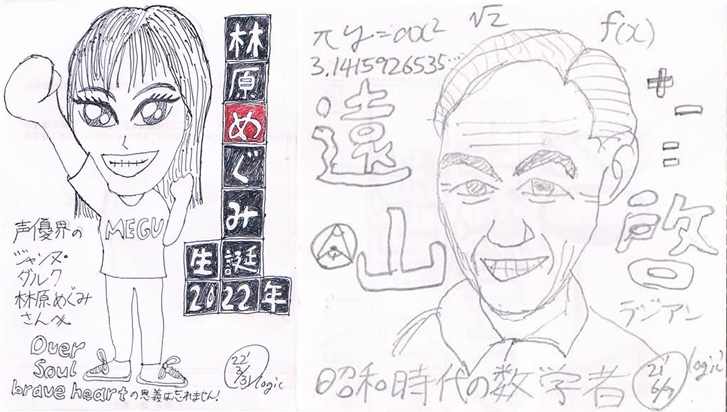 林原めぐみ
生誕
2022年
MEGU
声優界の
ジャンヌ・
ダルク
林原めぐみ
さんへ。
Over
Soul
brave heartの恩義は忘れません!
22'
3/31
logic
π y=ax² √2 f(x)
3.1415926535…
+ − =
遠山
啓
ラジアン
昭和時代の数学者
21'
logic